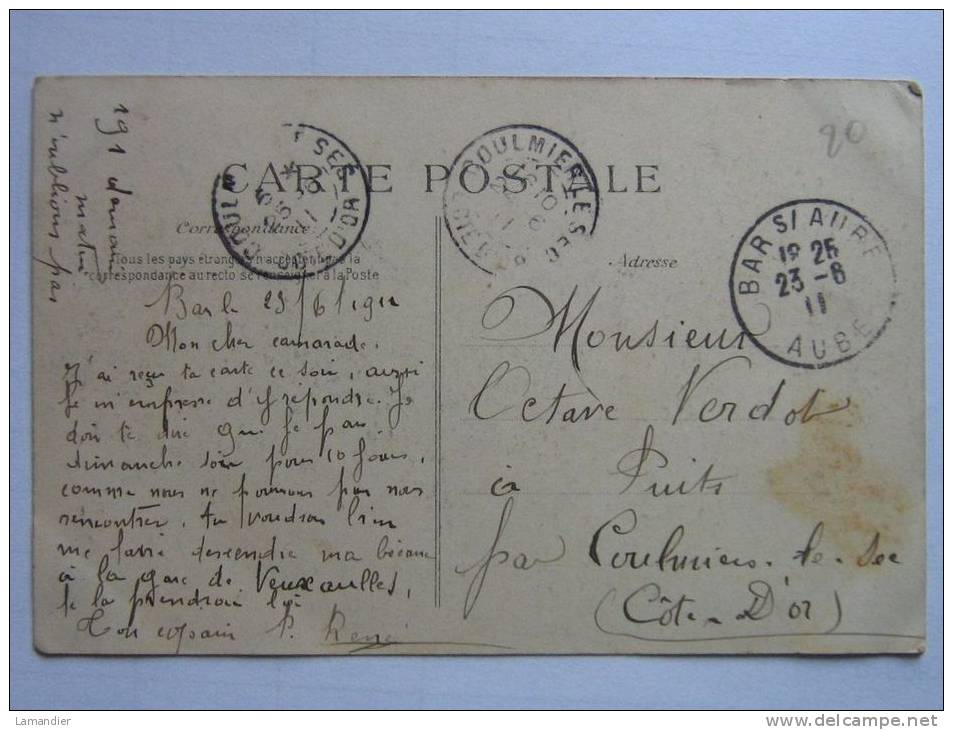 20
CARTE POSTALE
Correspondance
Adresse
Tous les pays étrangers n'acceptent pas la
correspondance au recto se renseigner à la Poste
COULMIER LE SEC
CÔTE D'OR
COULMIER LE SEC
BAR S/ AUBE
19 25
23 -6
11
AUBE
191 demain
matin
n'oublions pas
Bar le 23/6/1911
Mon cher camarade,
J'ai reçu ta carte ce soir, aussi
je m'empresse d'y répondre. Je
dois te dire que je pars
dimanche soir pour 10 jours,
comme nous ne pouvons pas nous
rencontrer, tu voudras bien
me faire descendre ma bécane
à la gare de Veuxaulles,
je la prendrai
Ton copain P. René
Monsieur
Octave Verdot
à Puits
par Coulmiers-le-Sec
(Côte-D'or)
Lamandier
delcampe.net